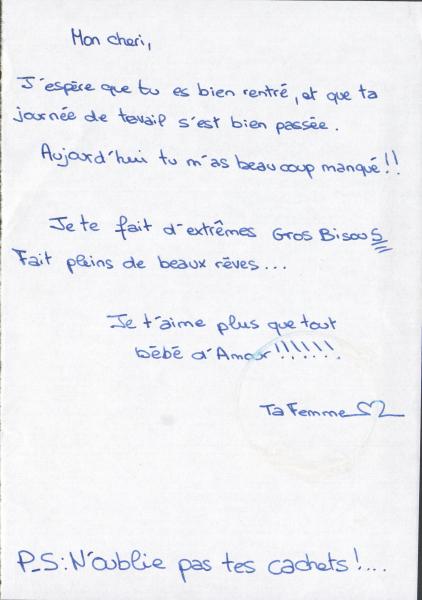 Mon cheri,
J'espère que tu es bien rentré, et que ta
journée de tavail s'est bien passée.
Aujourd'hui tu m'as beaucoup manqué!!
Je te fait d'extrêmes Gros Bisous
Fait pleins de beaux rêves...
Je t'aime plus que tout
bébé d'Amour!!!!!!!
Ta Femme
P_S: N'oublie pas tes cachets!....